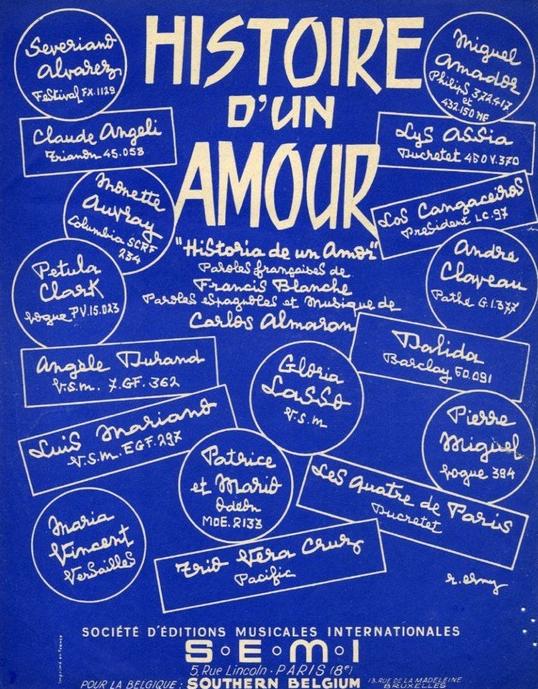 HISTOIRE
D'UN
AMOUR
"Historia de un Amor"
Paroles françaises de
Francis Blanche
Paroles espagnoles et Musique de
Carlos Almaran
Severiano
Alvarez
Festival FX.1129
Miguel
Amador
Philips 372.417
et
432.150 NE
Claude Angeli
Trianon 45.058
Lys Assia
Ducretet 460V.370
Monette
Auvray
Columbia SCRF
234
Los Cangaceiros
President LC.97
Petula
Clark
Vogue PV.15.023
Andre
Claveau
Pathé G.1377
Angèle Durand
V.S.M. 7.GF.362
Gloria
Lasso
V.S.M
Dalida
Barclay 60.091
Luis Mariano
V.S.M. EGF.297
Patrice
et Mario
Odeon
MOE.2133
Pierre
Miguel
Vogue 394
Les Quatre de Paris
Ducretet
Maria
Vincent
Versailles
Trio Vera Cruz
Pacific
SOCIÉTÉ D'ÉDITIONS MUSICALES INTERNATIONALES
S•E•M•I
5, Rue Lincoln - PARIS (8e)
POUR LA BELGIQUE : SOUTHERN BELGIUM 13, RUE DE LA MADELEINE
BRUXELLES
Imprimé en France